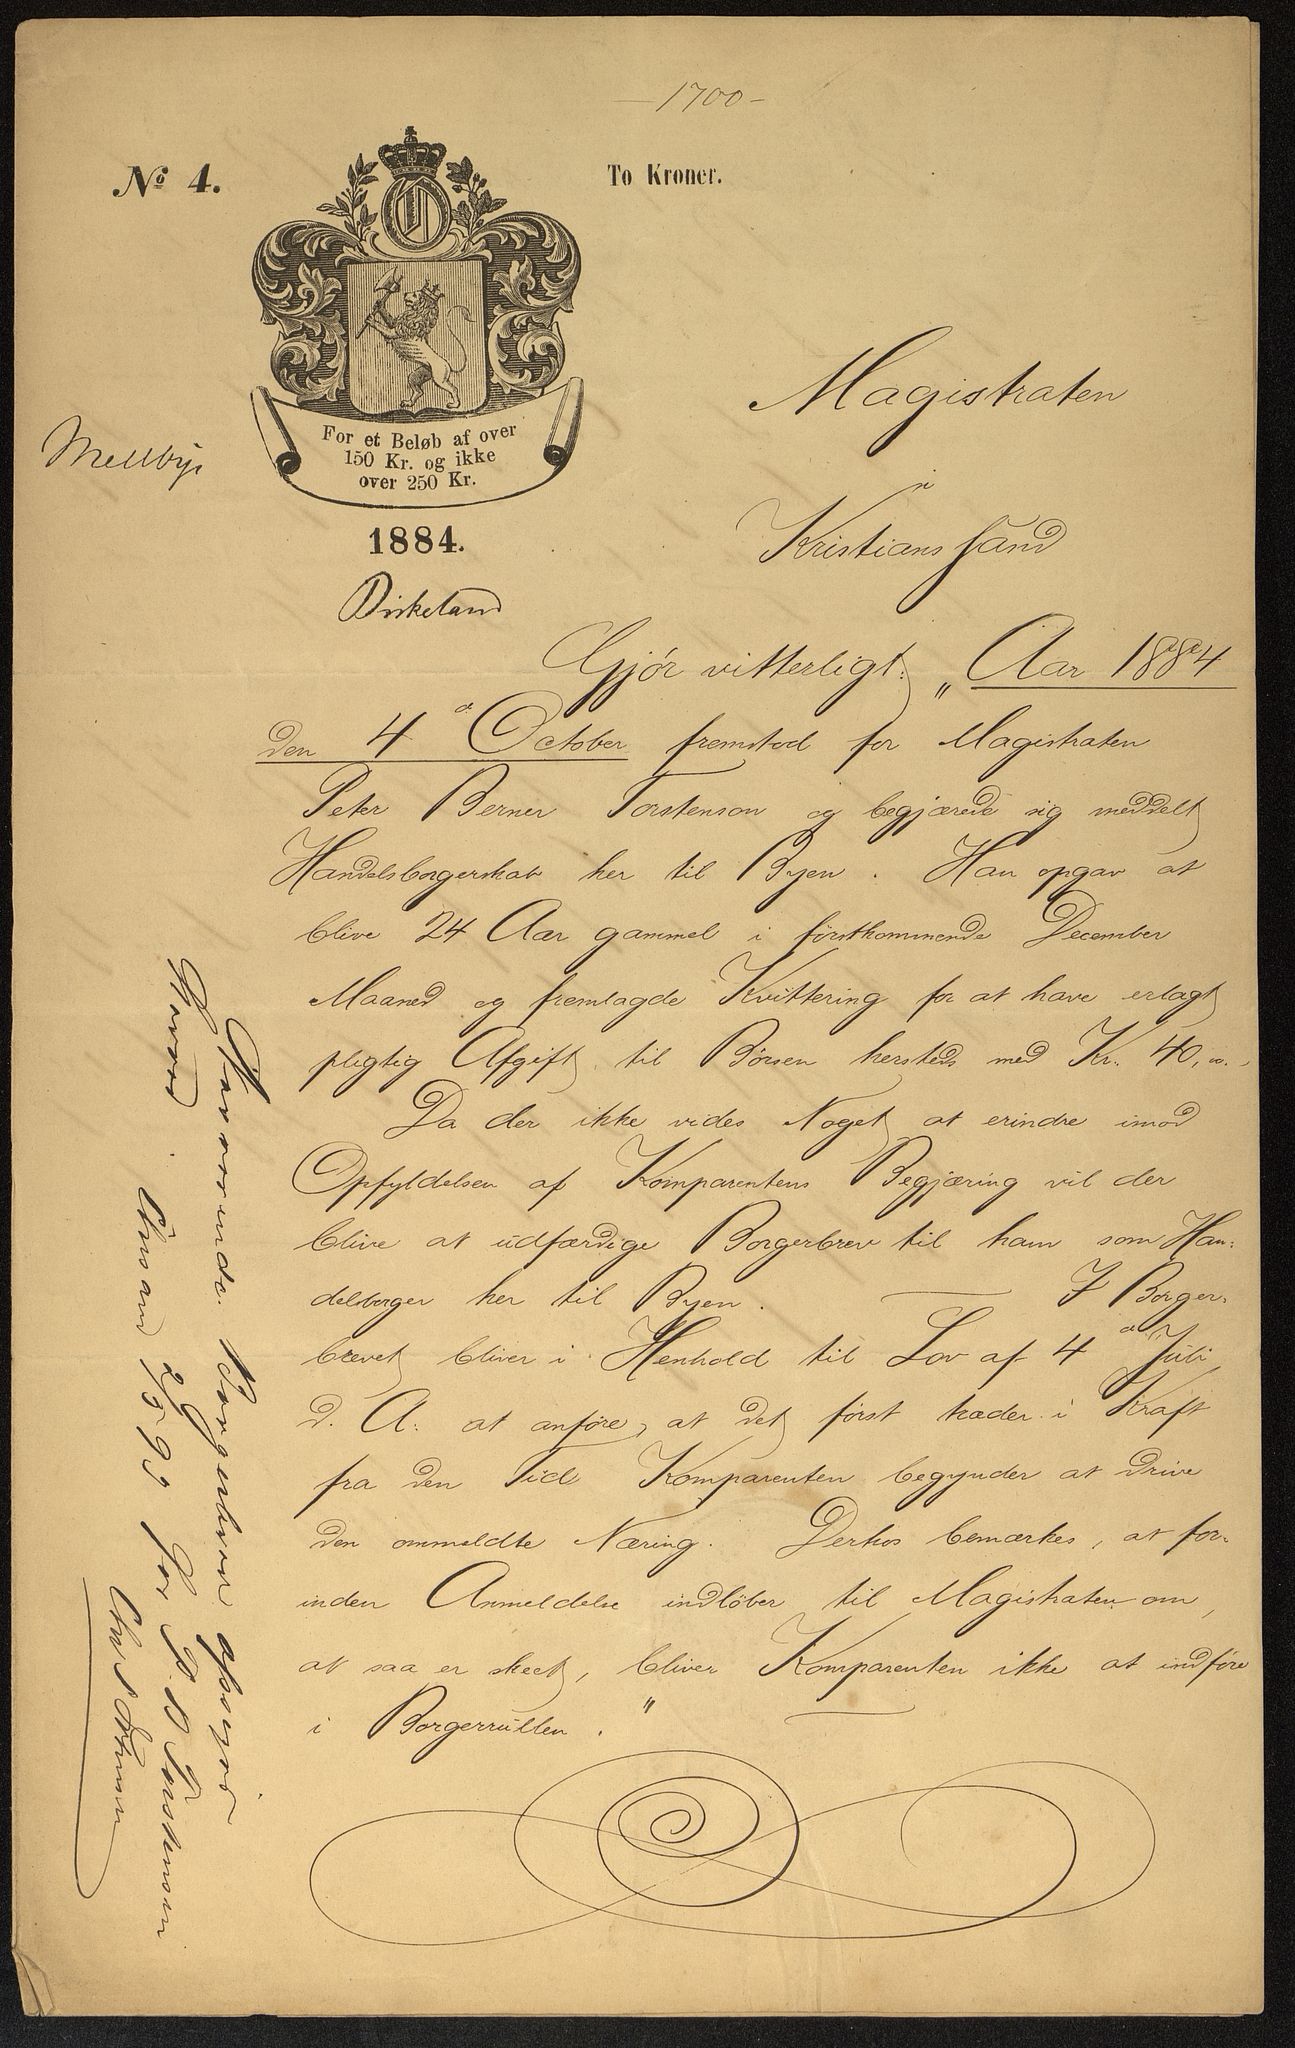 — 1700 —
No 4.
To Kroner.
For et Beløb af over
150 Kr. og ikke
over 250 Kr.
1884.
Mellbye
Birkeland
Magistraten
i
Kristianssand
Gjör vitterligt: „Aar 1884
den 4de October fremstod for Magistraten
Peter Berner Torstenson og begjærede sig meddelt
Handelsborgerskab her til Byen. Han opgav at
blive 24 Aar gammel i førstkommende December
Maaned og fremlagde Kvittering for at have erlagt
pligtig Afgift til Børsen hersteds med Kr. 40,00.
Da der ikke vides Noget at erindre imod
Opfyldelsen af Komparentens Begjæring vil der
blive at udfærdige Borgerbrev til ham som Han-
delsborger her til Byen. — I Borger-
brevet bliver i Henhold til Lov af 4de Juli
d. A. at anføre, at det først træder i Kraft
fra den Tid Komparenten begynder at drive
den ommeldte Næring. Derhos bemærkes, at for-
inden Anmeldelse indløber til Magistraten om,
at saa er skeet, bliver Komparenten ikke at indføre
i Borgerrullen." —
Nærværende Borgerbrev opsagt
Chrsand 2/5 93 for P. B. Torstensen